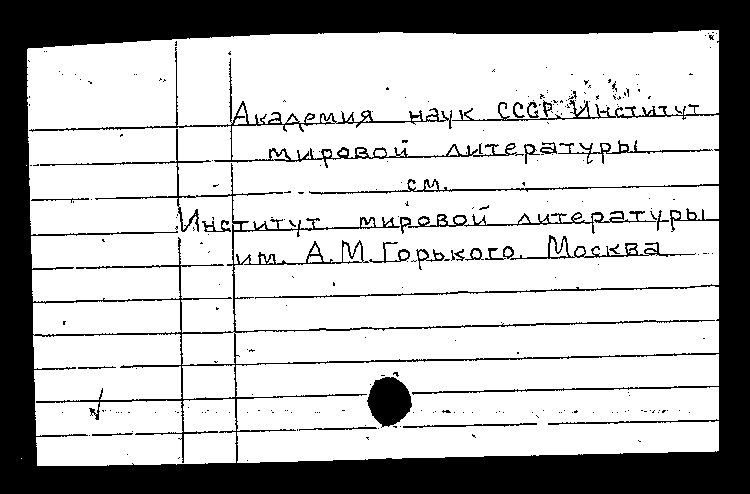 Академия наук СССР. Институт
мировой литературы
см.
Институт мировой литературы
им. А.М.Горького. Москва